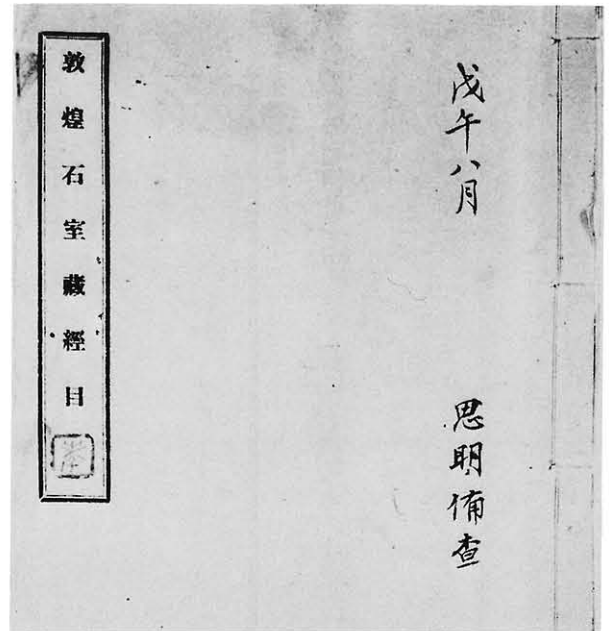 戊午八月
思明備查
敦煌石室藏經目